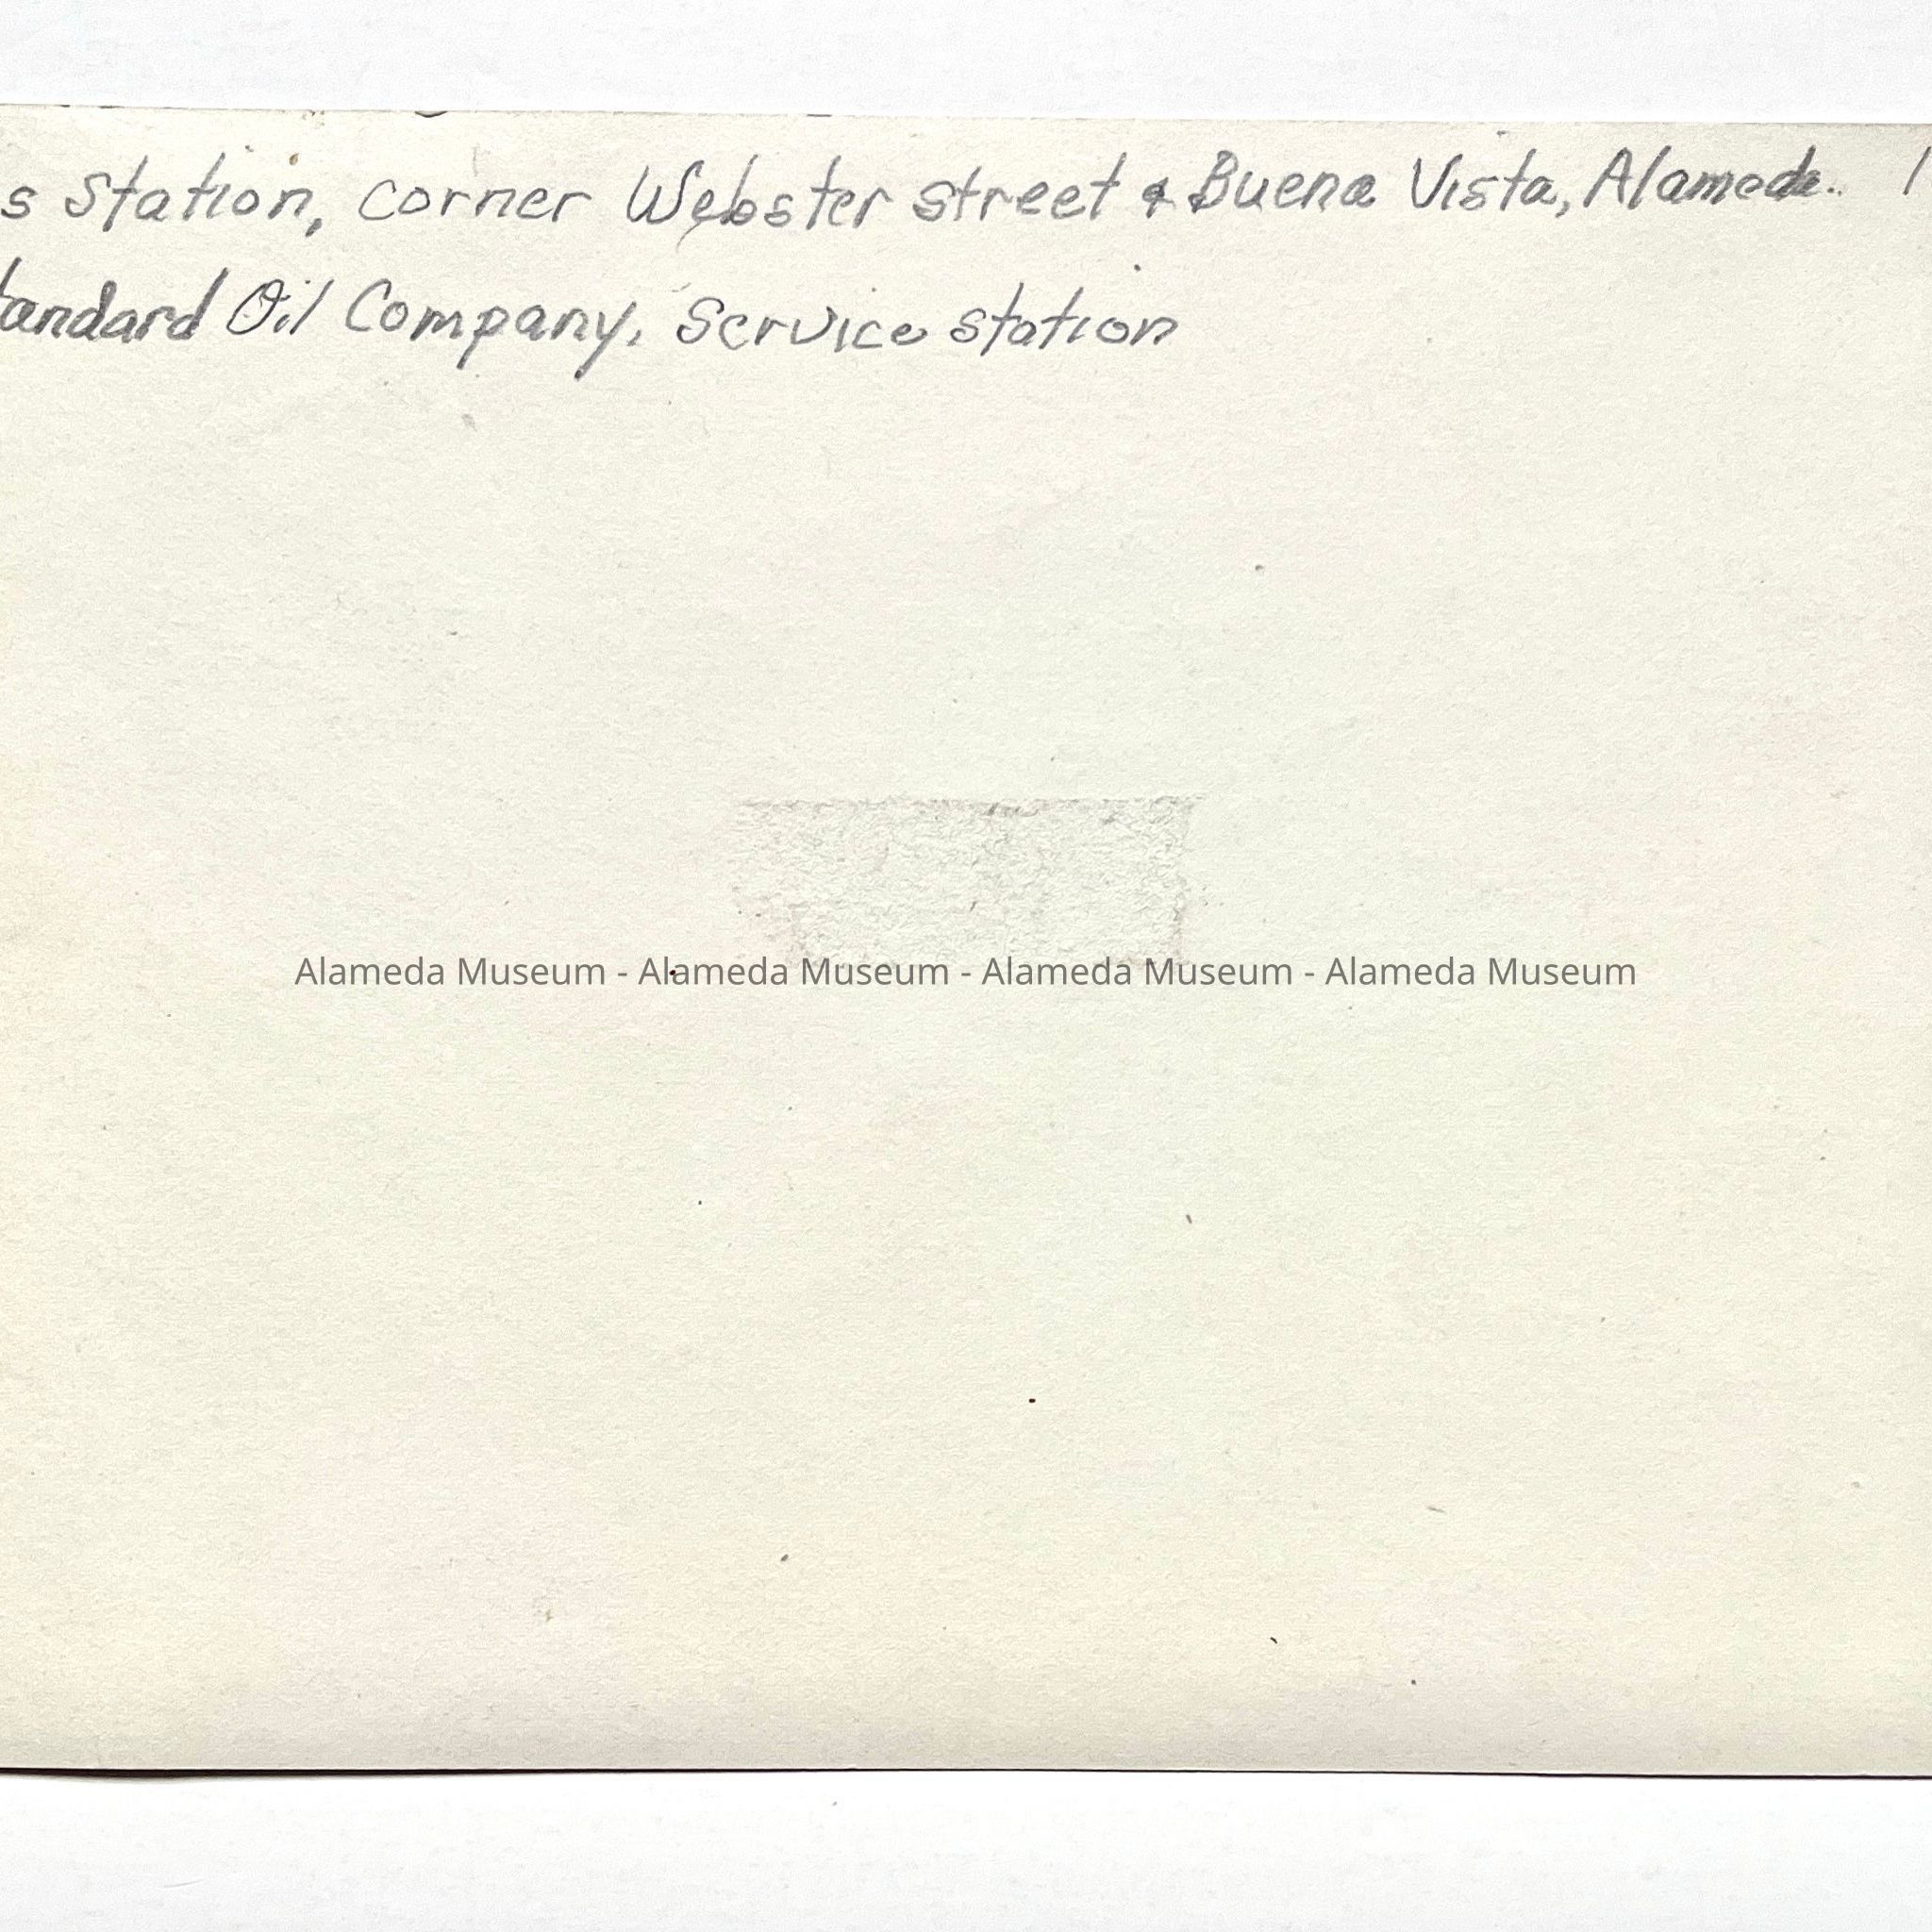 s Station, corner Webster street & Buena Vista, Alameda.
tandard Oil Company, Service station
Alameda Museum - Alameda Museum - Alameda Museum - Alameda Museum